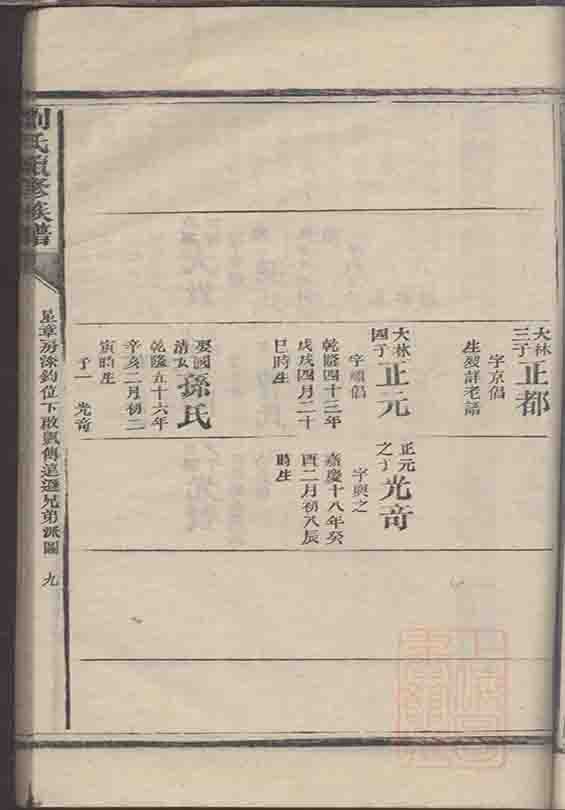 大林
三子
正都
字京倡
生歿詳老譜
大林
四子
正元
字順倡
乾隆四十三年
戊戌四月二十
巳時生
娶國
清女
孫氏
乾隆五十六年
辛亥二月初二
寅時生
子一 光奇
正元
之子
光奇
字興之
嘉慶十八年癸
酉二月初八辰
時生
劉氏續修族譜
星章房洙鈞位下啟
傳這遜兄弟派圖 九